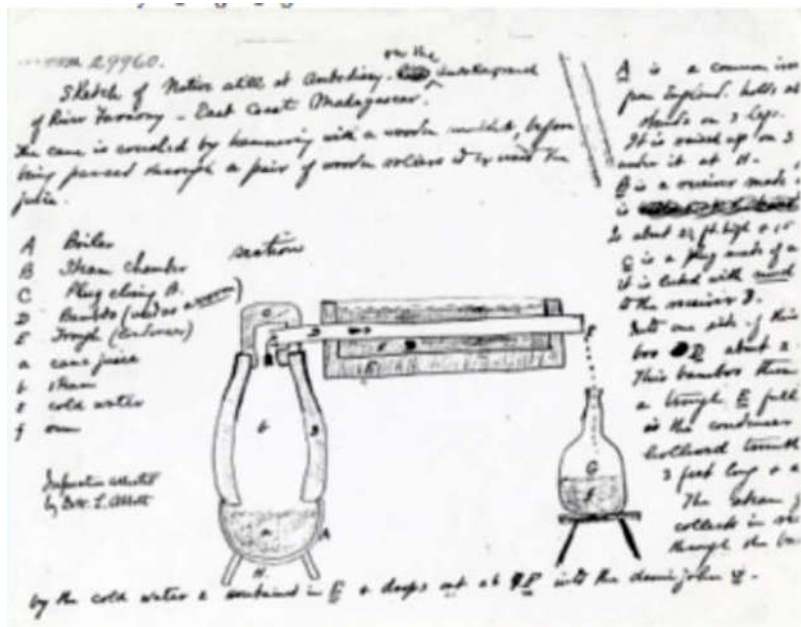 29960.
Sketch of Native still at Ambodisiny. on the
of River Faraony - East Coast Madagascar.
The cane is crushed by hammering with a wooden mallet, before
being passed through a pair of wooden rollers
juice.
A Boiler
B Steam chamber
C Plug closing B.
D Bamboo (used as a worm)
E Trough (condenser)
a cane juice
b steam
e cold water
f rum
section
Information collected
by Dr. L. Abbott
A is a common iron
from England. holds
stands on 3 legs.
It is raised up on 3
under it at H.
B is a receiver made
is
is about 2½ ft. high
C is a plug made of a
it is luted with mud
to the receiver B.
Into one side of this
boo D about 2
This bamboo then
a trough E full
is the condenser
hollowed
3 feet long + a
The steam
collects in
through the ba
by the cold water e contained in E + drops out at F into the demijohn G.